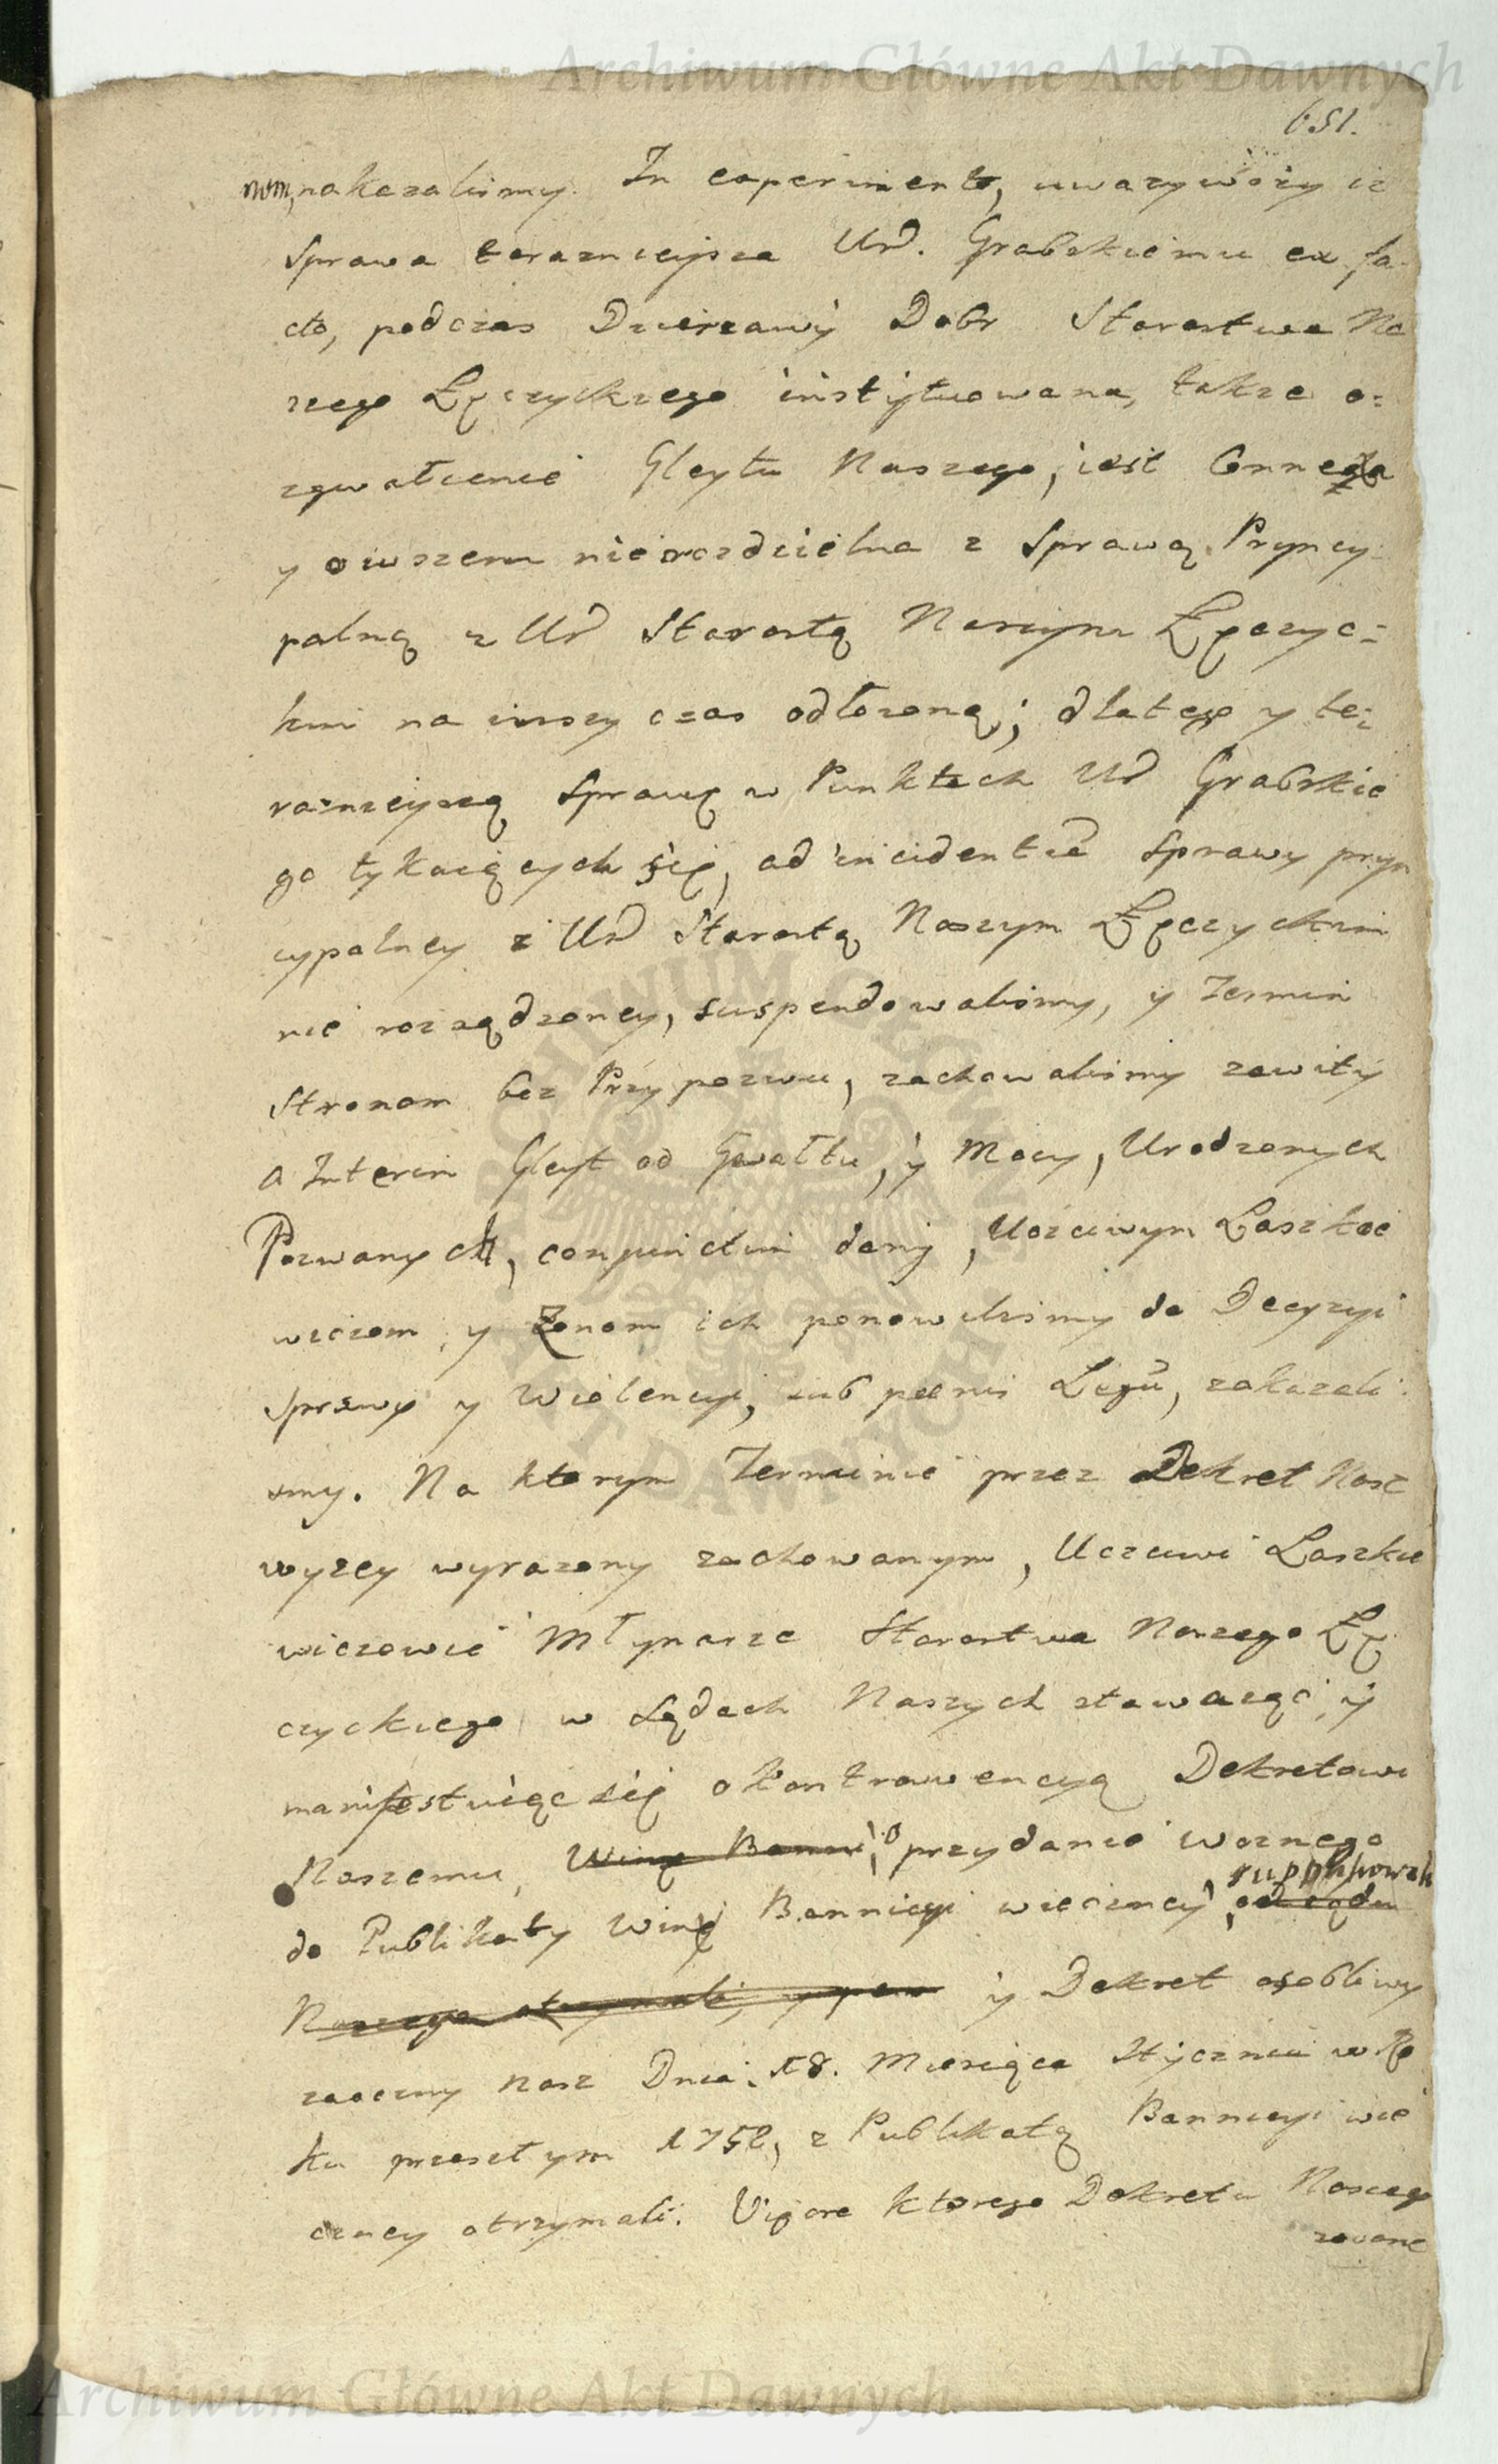 Archiwum Główne Akt Dawnych
651.
nakazalismy. In experimento, uwazywszy iz
Sprawa teraznieysza Ur. Grabskiemu ex fa-
cto, podczas Dzierzawy Dobr Starostwa Na
szego Łęczyckiego instytuowana, także o=
zgwałcenie Gleytu Naszego, iest Connexa
y owszem nierozdzielna z Sprawą Pryncy
palną z Ur Starostą Naszym Łęczyc=
kim na inszy czas odłozoną; dlatego y te=
raznieyszą Sprawę w Punktach Ur Grabskie
go tykaiących się, ad incidentiã Sprawy pryn
cypalney z Ur Starostą Naszym Łęczyckim
nie rozsądzoney, suspendowalismy, y Termin
Stronom bez Przypozwu, zachowalismy zawity
a Interim Gleyt od Gwałtu, y Mocy, Urodzonych
Pozwanych, conjunctim dany, Uczciwym Laszkie
wiczom y Zonom ich ponowilismy do Decyzyi
Sprawy y Wiolencyi, sub pœnis Legũ, zakazali
smy. Na ktorym Terminie przez Dekret Nasz
wyzey wyrazony zachowanym, Uczciwi Laszkie
wiczowie Młynarze Starostwa Naszego Łę
czyckiego w Sądach Naszych stawaiąc y
manifestuiąc się o kontrawencyą Dekretowi
Naszemu, Winę Banni, o przydanie woznego
do Publikaty Winę Bannicyi wieczney, supplikowali
od sądu
Naszego otrzymali, y y Dekret osobliwy
zaoczny nasz Dnia 18. Miesiąca Stycznia w Ro
ku przeszłym 1752, z Publikatą Bannicyi wie
czney otrzymali. Vigore ktorego Dekretu Naszego
Archiwum Główne Akt Dawnych